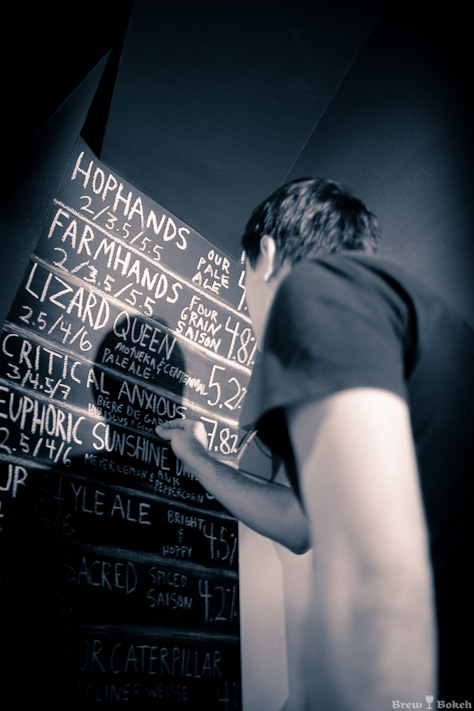 HOPHANDS
2/3.5/5.5
OUR
PALE
ALE
FARMHANDS
2/3.5/5.5
FOUR
GRAIN
SAISON
4.8%
LIZARD QUEEN
2.5/4/6
MOTUEKA & CENTENNIAL
PALE ALE
5.2%
CRITICAL ANXIOUS
3/4.5/7
BIÈRE DE GARDE
HIBISCUS
7.8%
EUPHORIC SUNSHINE
2.5/4/6
MEYER LEMON & PINK
PEPPERCORN
UP STYLE ALE
BRIGHT
&
HOPPY
4.5%
SACRED
SPICED
SAISON
4.2%
OR CATERPILLAR
BERLINER WEISSE
Brew Bokeh